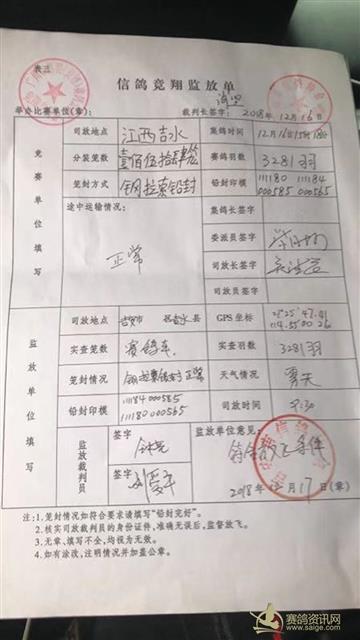 表三
信鸽竞翔监放单
举办比赛单位(章): 裁判长签字: 2018年12月16日
竞赛单位填写
司放地点 江西吉水 集鸽时间 12月16日15时18分
分装笼数 壹佰伍拾肆笼 赛鸽羽数 3281羽
笼封方式 钢拉索铅封 铅封印模 111180 111184
000585 000565
途中运输情况: 正常 集鸽长签字
委派员签字
司放长签字
司放员签字
监放单位填写
司放地点 吉安市 县吉水县 GPS坐标 27°25′47.41
114.55 00 26
实查笼数 赛鸽车 实查羽数 3281羽
笼封情况 钢拉索铅封正常 天气情况 雾天
铅封印模 111184 000585
111180 000565 司放时间 9:30
监放裁判员 签字 监放单位意见:
符合放飞条件
签字
2018年12月17日(章)
注:1.笼封情况如符合要求请填写“铅封完好”。
2.核实司放裁判员的身份证件,准确无误后,监督放飞。
3.无章、填写不全,均视为无效。
4.如有涂改,注明情况并加盖公章。
赛鸽资讯网
www.saige.com